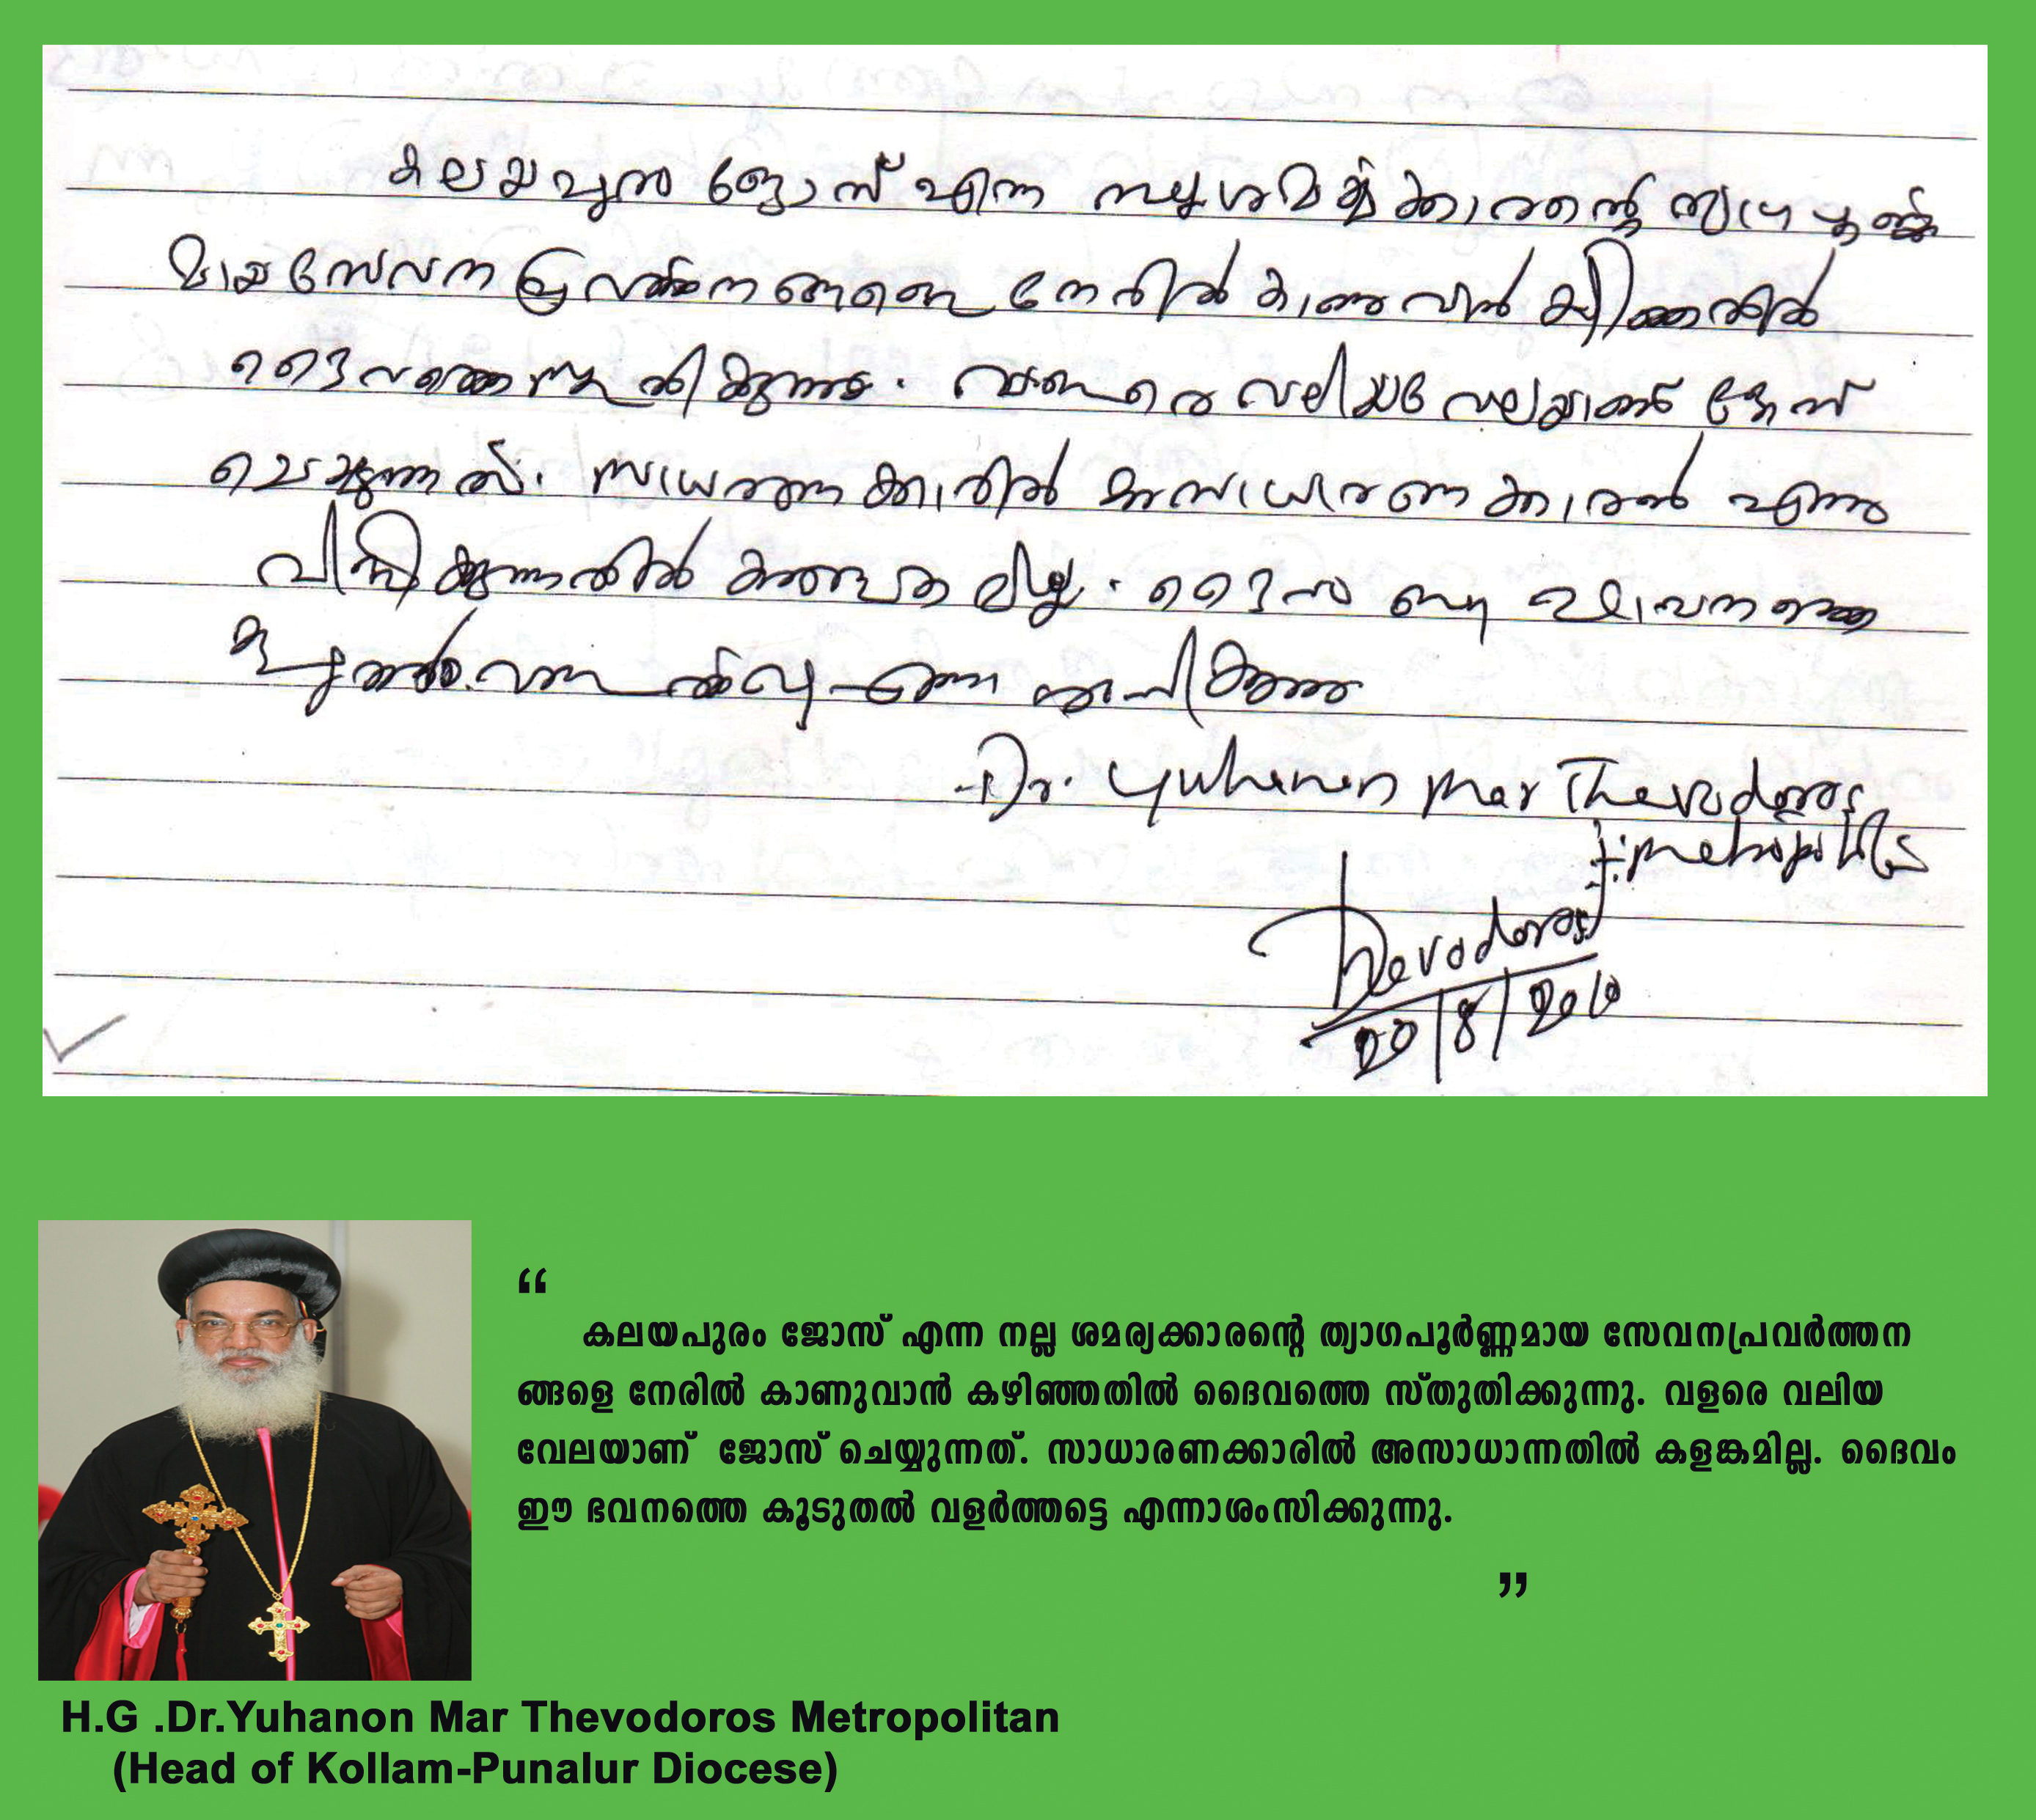 കലയപുരം ജോസ് എന്ന നല്ല ശമര്യക്കാരന്റെ ത്യാഗപൂർണ്ണ
മായ സേവന പ്രവർത്തനങ്ങളെ നേരിൽ കാണുവാൻ കഴിഞ്ഞതിൽ
ദൈവത്തെ സ്തുതിക്കുന്നു. വളരെ വലിയ വേലയാണ് ജോസ്
ചെയ്യുന്നത്. സാധാരണക്കാരിൽ അസാധാരണക്കാരൻ എന്നു
വിളിക്കുന്നതിൽ ദൈവം ഈ ഭവനത്തെ
കൂടുതൽ വളർത്തട്ടെ എന്ന് ആശംസിക്കുന്നു
Dr. Yuhanon Mar Thevodoros
Metropolitan
Thevodoros
20/8/2010
“
കലയപുരം ജോസ് എന്ന നല്ല ശമര്യക്കാരന്റെ ത്യാഗപൂർണ്ണമായ സേവനപ്രവർത്തന
ങ്ങളെ നേരിൽ കാണുവാൻ കഴിഞ്ഞതിൽ ദൈവത്തെ സ്തുതിക്കുന്നു. വളരെ വലിയ
വേലയാണ് ജോസ് ചെയ്യുന്നത്. സാധാരണക്കാരിൽ അസാധാന്നതിൽ കളങ്കമില്ല. ദൈവം
ഈ ഭവനത്തെ കൂടുതൽ വളർത്തട്ടെ എന്നാശംസിക്കുന്നു.
”
H.G .Dr.Yuhanon Mar Thevodoros Metropolitan
(Head of Kollam-Punalur Diocese)